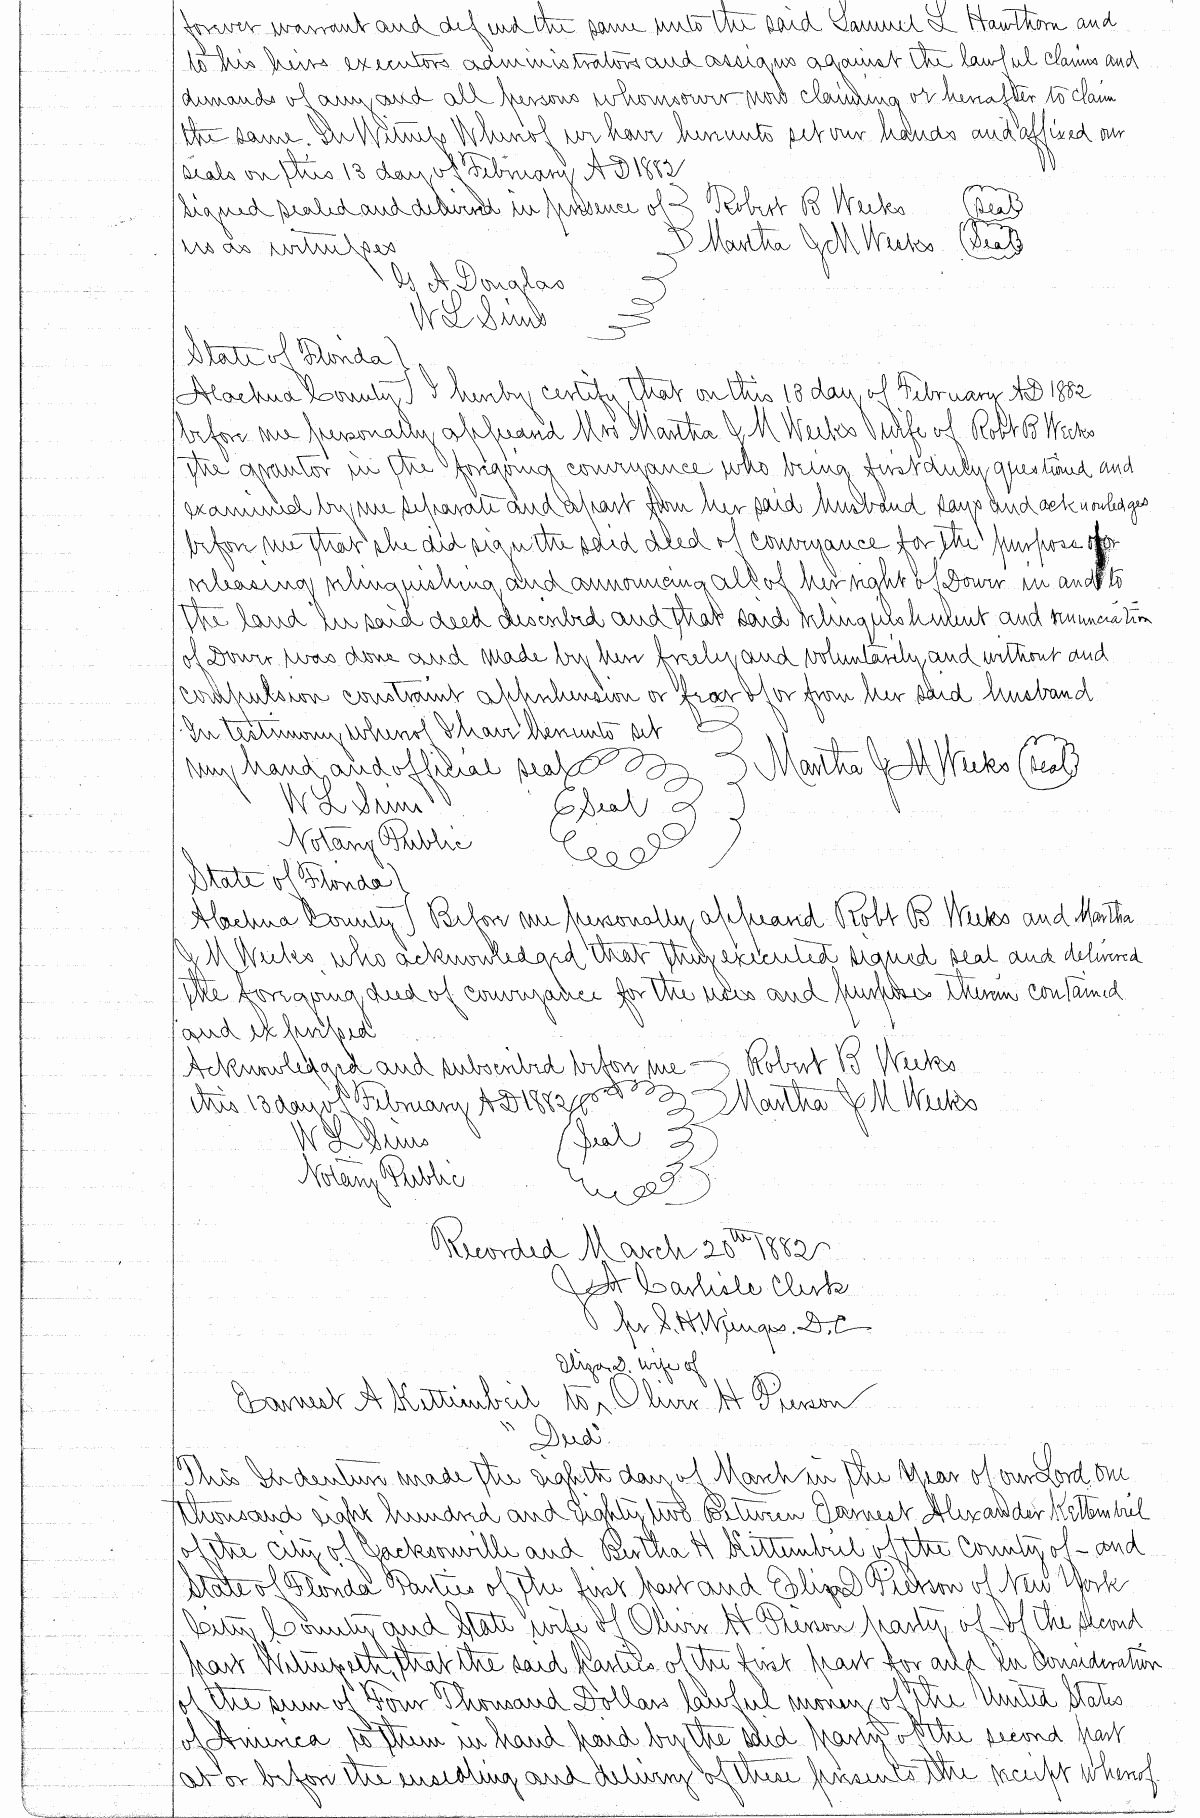 forever warrant and defend the same unto the said Samuel L Hawthorn and
to his heirs executors administrators and assigns against the lawful claims and
demands of any and all persons whomsoever now claiming or hereafter to claim
the same. In Witness Whereof we have hereunto set our hands and affixed our
seals on this 13 day of February AD 1882
Signed sealed and delivered in presence of Robert B Weeks (Seal)
us as witnesses Martha J M Weeks (Seal)
G A Douglas
W L Sims
State of Florida }
Alachua County } I hereby certify that on this 13 day of February AD 1882
before me personally appeared Mrs Martha J M Weeks wife of Robt B Weeks
the grantor in the foregoing conveyance who being first duly questioned and
examined by me separate and apart from her said husband says and acknowledges
before me that she did sign the said deed of conveyance for the purpose of
releasing relinquishing and announcing all of her right of Dower in and to
the land in said deed described and that said relinquishment and renunciation
of Dower was done and made by her freely and voluntarily and without and
compulsion constraint apprehension or fear of or from her said husband
In testimony whereof I have hereunto set
my hand and official seal Martha J M Weeks (Seal)
W L Sims (Seal)
Notary Public
State of Florida }
Alachua County } Before me personally appeared Robt B Weeks and Martha
J M Weeks who acknowledged that they executed signed seal and delivered
the foregoing deed of conveyance for the uses and purposes therein contained
and expressed
Acknowledged and subscribed before me Robert B Weeks
this 13 day of February AD 1882 Martha J M Weeks
W L Sims (Seal)
Notary Public
Recorded March 20th 1882
J A Carlisle Clerk
per S. H. Wienges. D.C
Eliza D. wife of
Earnest A Kettembeil to ^ Oliver H Pierson
"Deed"
This Indenture made the eighth day of March in the Year of our Lord one
thousand eight hundred and Eighty two Between Earnest Alexander Kettembeil
of the city of Jacksonville and Bertha H Kettembeil of the County of – and
State of Florida Parties of the first part and Eliza D Pierson of New York
City County and State wife of Oliver H Pierson party of – of the second
part Witnesseth, that the said Parties of the first part for and In Consideration
of the sum of Four Thousand Dollars lawful money of the United States
of America to them in hand paid by the said party of the second part
at or before the ensealing and delivery of these presents the receipt whereof